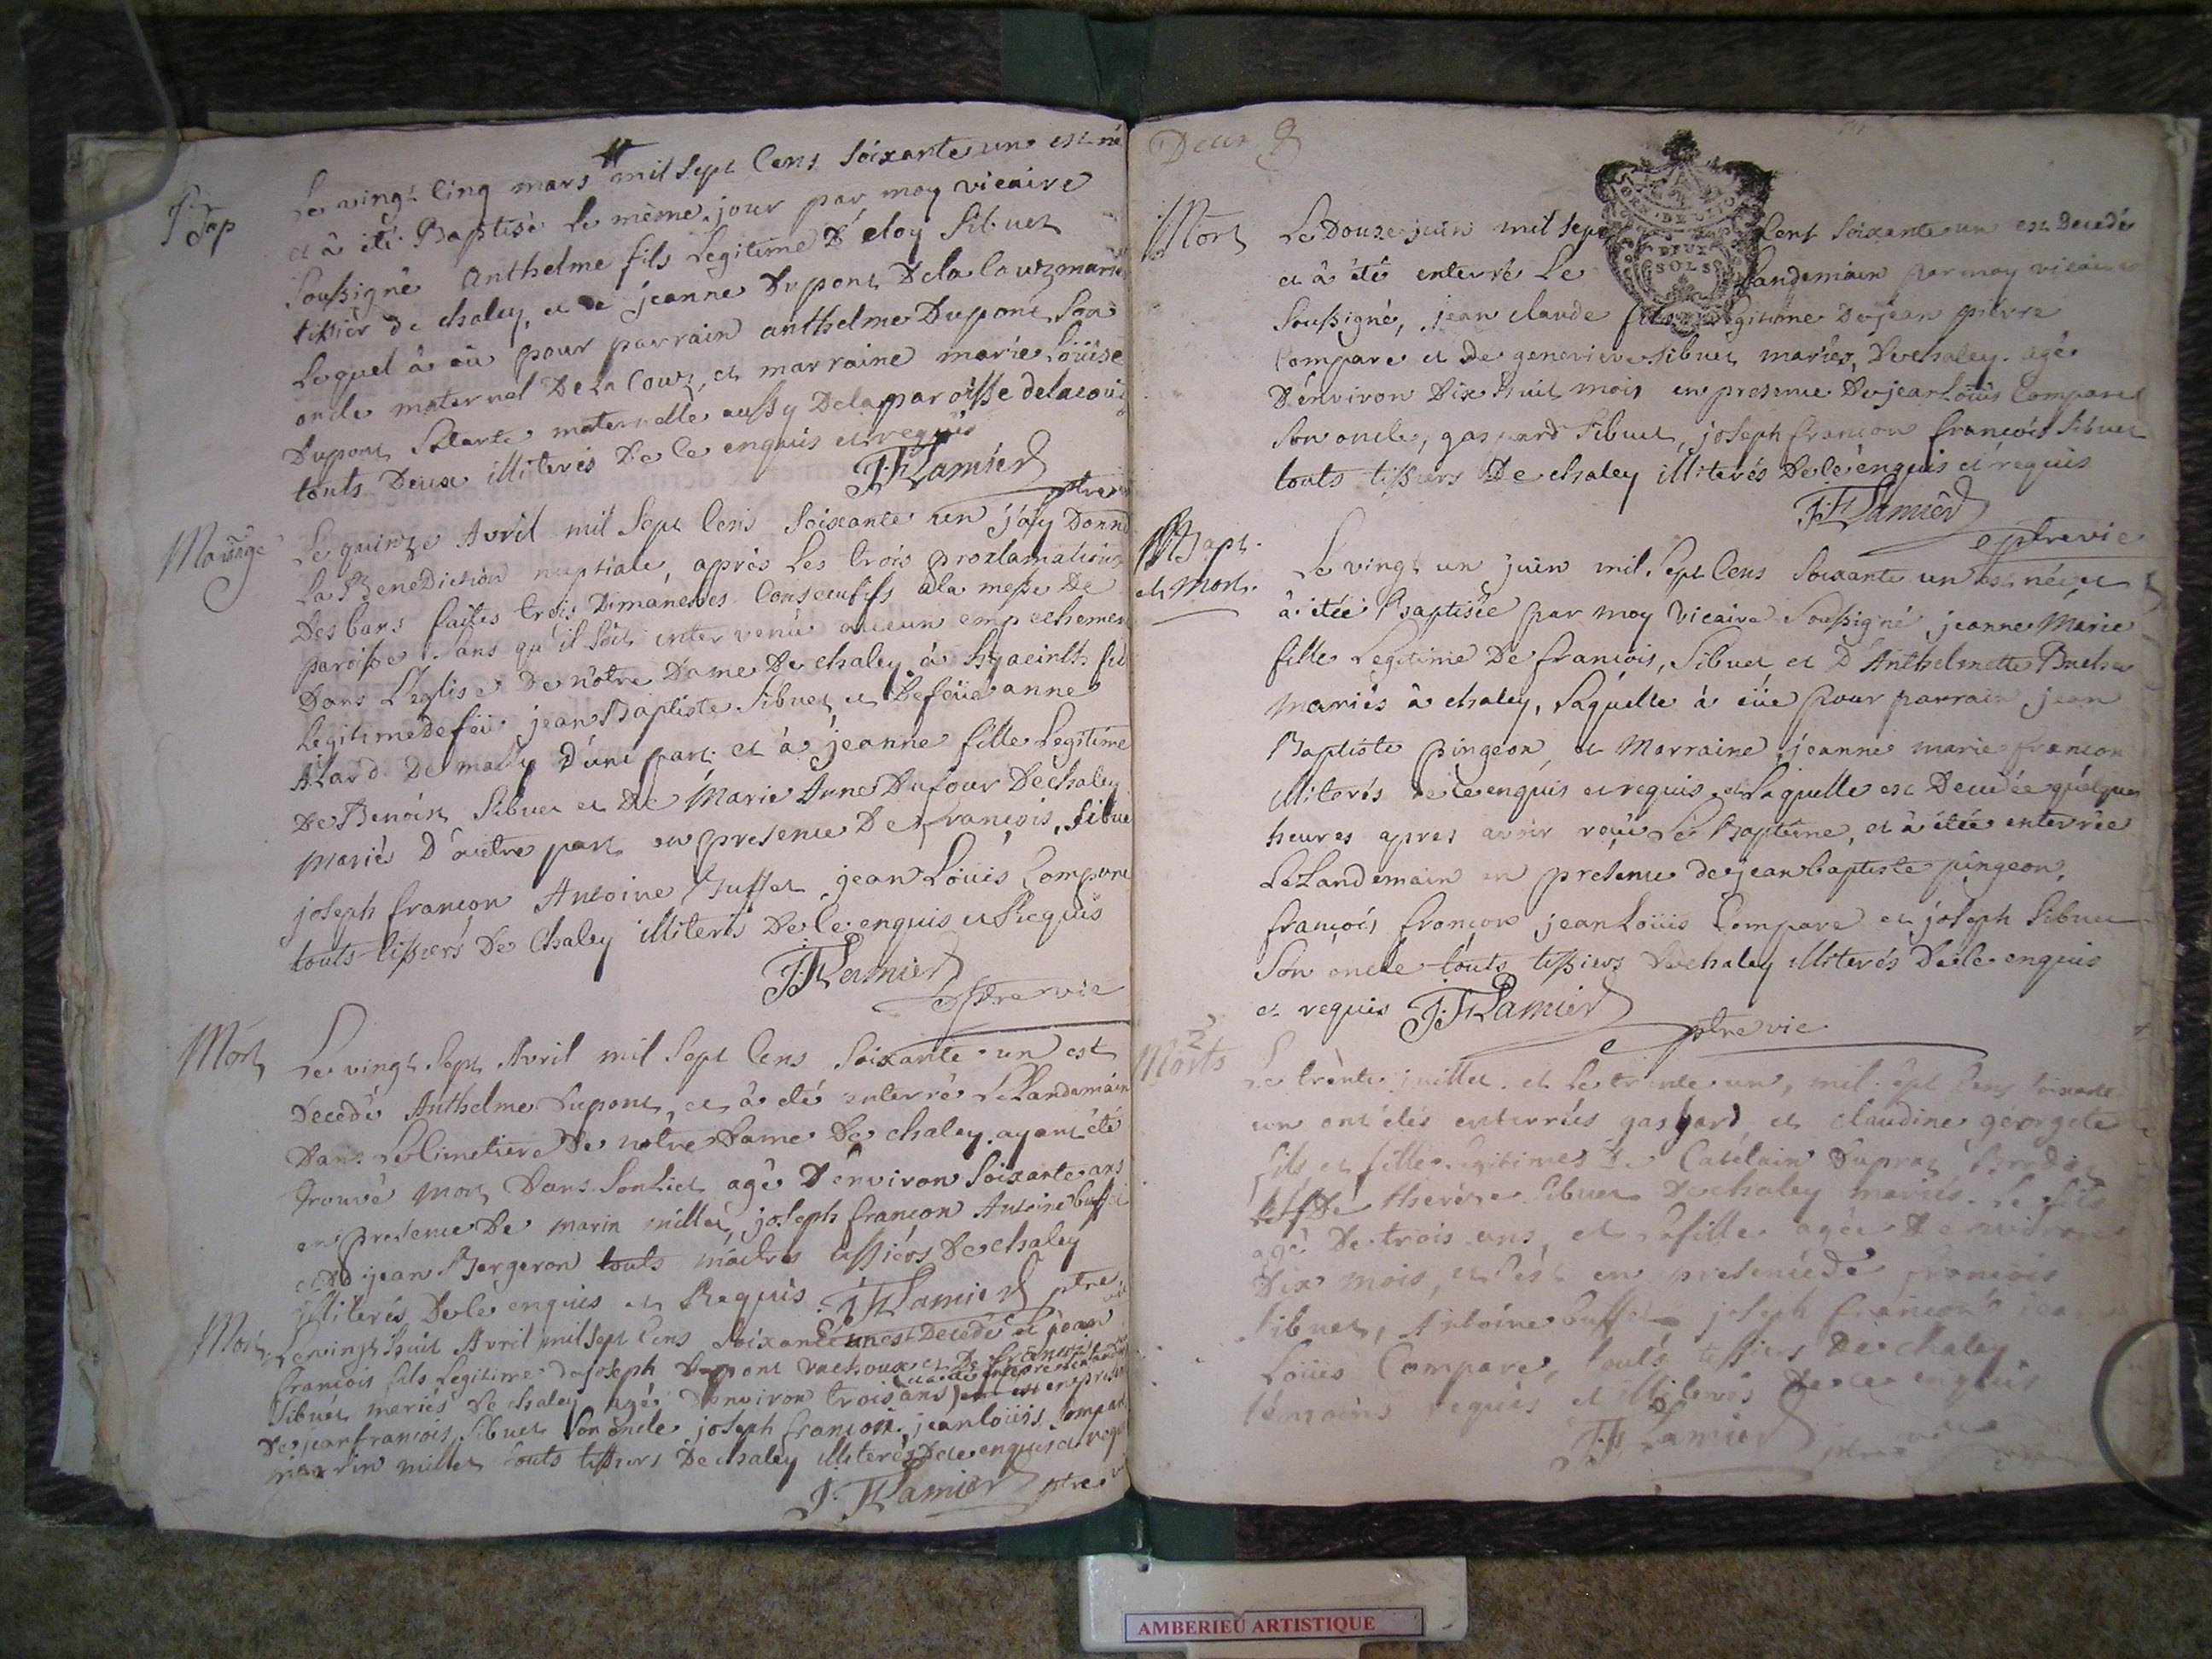 Bap
Le vingt Cinq mars mil sept Cens soixante un est né
et â été Baptisé le même jour par moy vicaire
soußigné Anthelme fils Legitime D'éloy sibuet
tißier de chaley, et de jeanne Dupont De la Couz mariés
lequel â eû pour parrain anthelme Dupont son
oncle maternel De La Couz, et marraine marie Loüise
Dupont sa tante maternelle aussy De la paroisse de la couz
touts Deux illiterés De Ce enquis et requis
J: F Lamier ptre
Mariage
Le quinze Avril mil sept Cens soixante un j'ay Donné
La Benediction nuptiale, aprés Les trois proclamations
Des bans faites trois Dimanches Consecutifs a la meße De
paroiße sans qu'il soit intervenû aucun empechement
Dans L'eglise De nôtre Dame De chaley â hyacinth fils
Legitime de feü jean Baptiste sibuet et De feüe anne
D'une part et â jeanne fille Legitime
De Benoist sibuet et De Marie Anne Dufour De chaley
Mariés D'autre part en presence De françois sibuet
joseph francon Antoine Buffet jean Loüis Compare
touts tißiers De Chaley illiterés De Ce enquis et Requis
J: F Lamier ptre vic
Mort
Le vingt sept Avril mil sept Cens soixante un est
Decedé Anthelme Dupont, et â été enterré Le Landemain
Dans Le Cimetiere De notre Dame De chaley ayant été
trouvé mort Dans son Lict agé D'environ soixante ans
en presence De marin millet, joseph francon Antoine buffet
et De jean Bergeron touts maîtres tißiers De chaley
illiterés De Ce enquis et Requis. J: F Lamier ptre vic
Mort
Le vingt huit Avril mil sept Cens soixante un est Decedé et jean
françois fils Legitime de joseph Dupont et De françoise
sibuet mariés De chaley agé D'environ trois ans en presence
De jean françois sibuet son oncle joseph francon, jean loüis Compare
marin millet touts tißiers De chaley illiterés De Ce enquis et requis
J: F Lamier ptre
Deux
Mort
Le Douze juin mil sept Cent soixante un est Decedé
DEUX SOLS
et â été enterré Le Landemain par moy vicaire
soußigné, jean claude fils Legitime De jean pierre
Compare et de genevieve sibuet mariés, De chaley. agé
D'environ Dix huit mois en presence De jean Loüis Compare
son oncle, gaspard sibuet, joseph francon françois sibuet
touts tißiers De chaley illiterés De Ce enquis et requis
J: F Lamier ptre vic
Bapt.
et Mort.
Le vingt un juin mil sept Cens soixante un est née, et
â étée Baptisée par moy vicaire soußigné, jeanne Marie
fille Legitime De françois, sibuet et D'Anthelmette
mariés â chaley, Laquelle â eüe pour parrain jean
Baptiste pingeon, et Marraine jeanne marie francon
illiterés de Ce enquis et requis, et Laquelle est Decedée quelques
heures apres avoir reçû Le Baptême, et â étée enterrée
Le Landemain en presence de jean baptiste pingeon,
françois francon jean Loüis Compare et joseph sibuet
son oncle touts tißiers De chaley illiterés De Ce enquis
et requis J: F Lamier ptre vic
2
Morts
Le trente juillet et Le trente un, mil sept Cens soixante
un ont étés enterrés gaspard et claudine georgete
fils et fille Legitimes De Catelain Dupraz
et De therese sibuet De chaley mariés. Le fils
agé De trois ans, et La fille agée D'environ
Dix mois, et c'est en presence de françois
sibuet, Antoine buffet joseph francon jean
Loüis Compare, touts tißiers De chaley
témoins requis et illiterés De Ce enquis
J: F Lamier ptre vic
AMBERIEU ARTISTIQUE